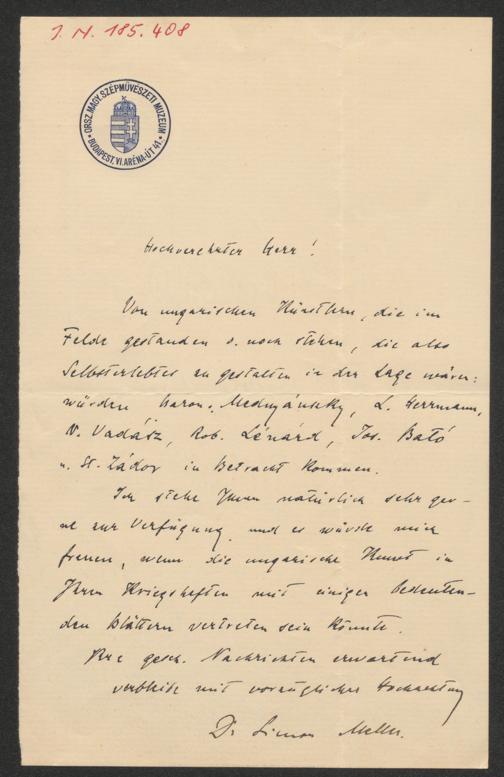 J. N. 185.408
ORSZ. MAGY. SZÉPMŰVÉSZETI MUZEUM
BUDAPEST, VI. ARÉNA-ÚT 41.
Hochverehrter Herr!
Von ungarischen Künstlern, die im
Felde gestanden o. noch stehen, die also
Selbsterlebtes zu gestalten in der Lage wären:
würden Baron. Mednyánszky, L. Herrmann,
N. Vadász, Rob. Lénárd, Jos. Bató
u. St. Zádor in Betracht kommen.
Ich stehe Ihnen natürlich sehr ger-
ne zur Verfügung und es würde mich
freuen, wenn die ungarische Kunst in
Ihren Kriegsheften mit einigen bedeuten-
den Blättern vertreten sein könnte.
Ihre gesch. Nachrichten erwartend
verbleibe mit vorzüglicher Hochachtung
Dr Simon Meller.